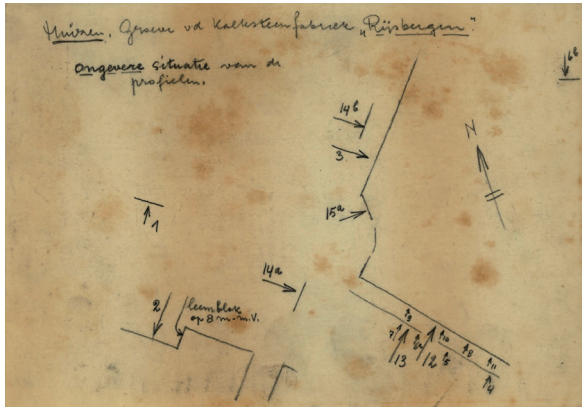 Huizen. Groeve vd Kalksteenfabriek „Rijsbergen".
ongevere situatie van de
profielen.
6b
14b
3
N
15a
1
14a
2
leemblok
op 8 m-m.V.
9
7
6a
10
13
12
5
8
11
4